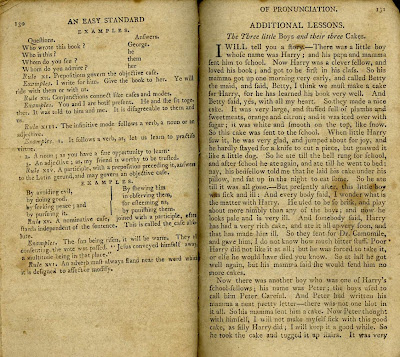 130
AN EASY STANDARD
EXAMPLES.
Questions. Answers.
Who wrote this book? George.
Who is this? he
Whom do you see? them
Whom do you admire? her
Rule XI. Prepositions govern the objective case.
Examples. I write for him. Give the book to her. Ye will
ride with them or with us.
Rule XII. Conjunctions connect like cases and modes.
Examples. You and I are both present. He and she sit toge-
ther. It was told to him and me. It is disagreeable to them and
us.
Rule XIII. The infinitive mode follows a verb, a noun or an
adjective.
Examples. 1. It follows a verb, as, let us learn to practise
virtue.
2. A noun; as you have a fine opportunity to learn.
3. An adjective; as, my friend is worthy to be trusted.
Rule XIV. A participle, with a preposition preceding it, answers
to the Latin gerund, and may govern an objective case.
EXAMPLES.
By avoiding evil, By shewing him
by doing good, by obeying them,
by seeking peace; and for esteeming us,
by pursuing it. by punishing them.
Rule XV. A nominative case, joined with a participle, often
stands independent of the sentence. This is called the case abso-
lute.
Examples. The sun being risen, it will be warm. They all
consenting, the vote was passed. "Jesus conveyed himself away,
a multitude being in that place."
Rule XVI. An adverb must always stand near the word which
it is designed to affect or modify.
OF PRONUNCIATION. 131
ADDITIONAL LESSONS.
The Three little Boys and their three Cakes.
I WILL tell you a story.—There was a little boy
whose name was Harry; and his papa and mamma
sent him to school. Now Harry was a clever fellow, and
loved his book; and got to be first in his class. So his
mamma got up one morning very early, and called Betty
the maid, and said, Betty, I think we must make a cake
for Harry, for he has learned his book very well. And
Betty said, yes, with all my heart. So they made a nice
cake. It was very large, and stuffed full of plumbs and
sweetmeats, orange and citron; and it was iced over with
sugar; it was white and smooth on the top, like snow.
So this cake was sent to the school. When little Harry
saw it, he was very glad, and jumped about for joy, and
he hardly stayed for a knife to cut a piece, but gnawed it
like a little dog. So he ate till the bell rung for school,
and after school he ate again, and ate till he went to bed;
nay, his bedfellow told me that he laid his cake under his
pillow, and sat up in the night to eat some. So he ate
till it was all gone.—But presently after, this little boy
was sick and ill: And every body said, I wonder what is
the matter with Harry. He used to be so brisk, and play
about more nimbly than any of the boys; and now he
looks pale and is very ill. And somebody said, Harry
has had a very rich cake, and ate it all up very soon, and
that has made him ill. So they sent for Dr. Camomile,
and gave him, I do not know how much bitter stuff. Poor
Harry did not like it at all; but he was forced to take it,
or else he would have died you know. So at last he got
well again, but his mamma said she would send him no
more cakes.
Now there was another boy who was one of Harry's
school-fellows; his name was Peter; the boys used to
call him Peter Careful. And Peter had written his
mamma a neat pretty letter—there was not one blot in
it all. So his mamma sent him a cake. Now Peter thought
with himself, I will not make myself sick with this good
cake, as silly Harry did; I will keep it a good while. So
he took the cake and tugged it up stairs. It was very